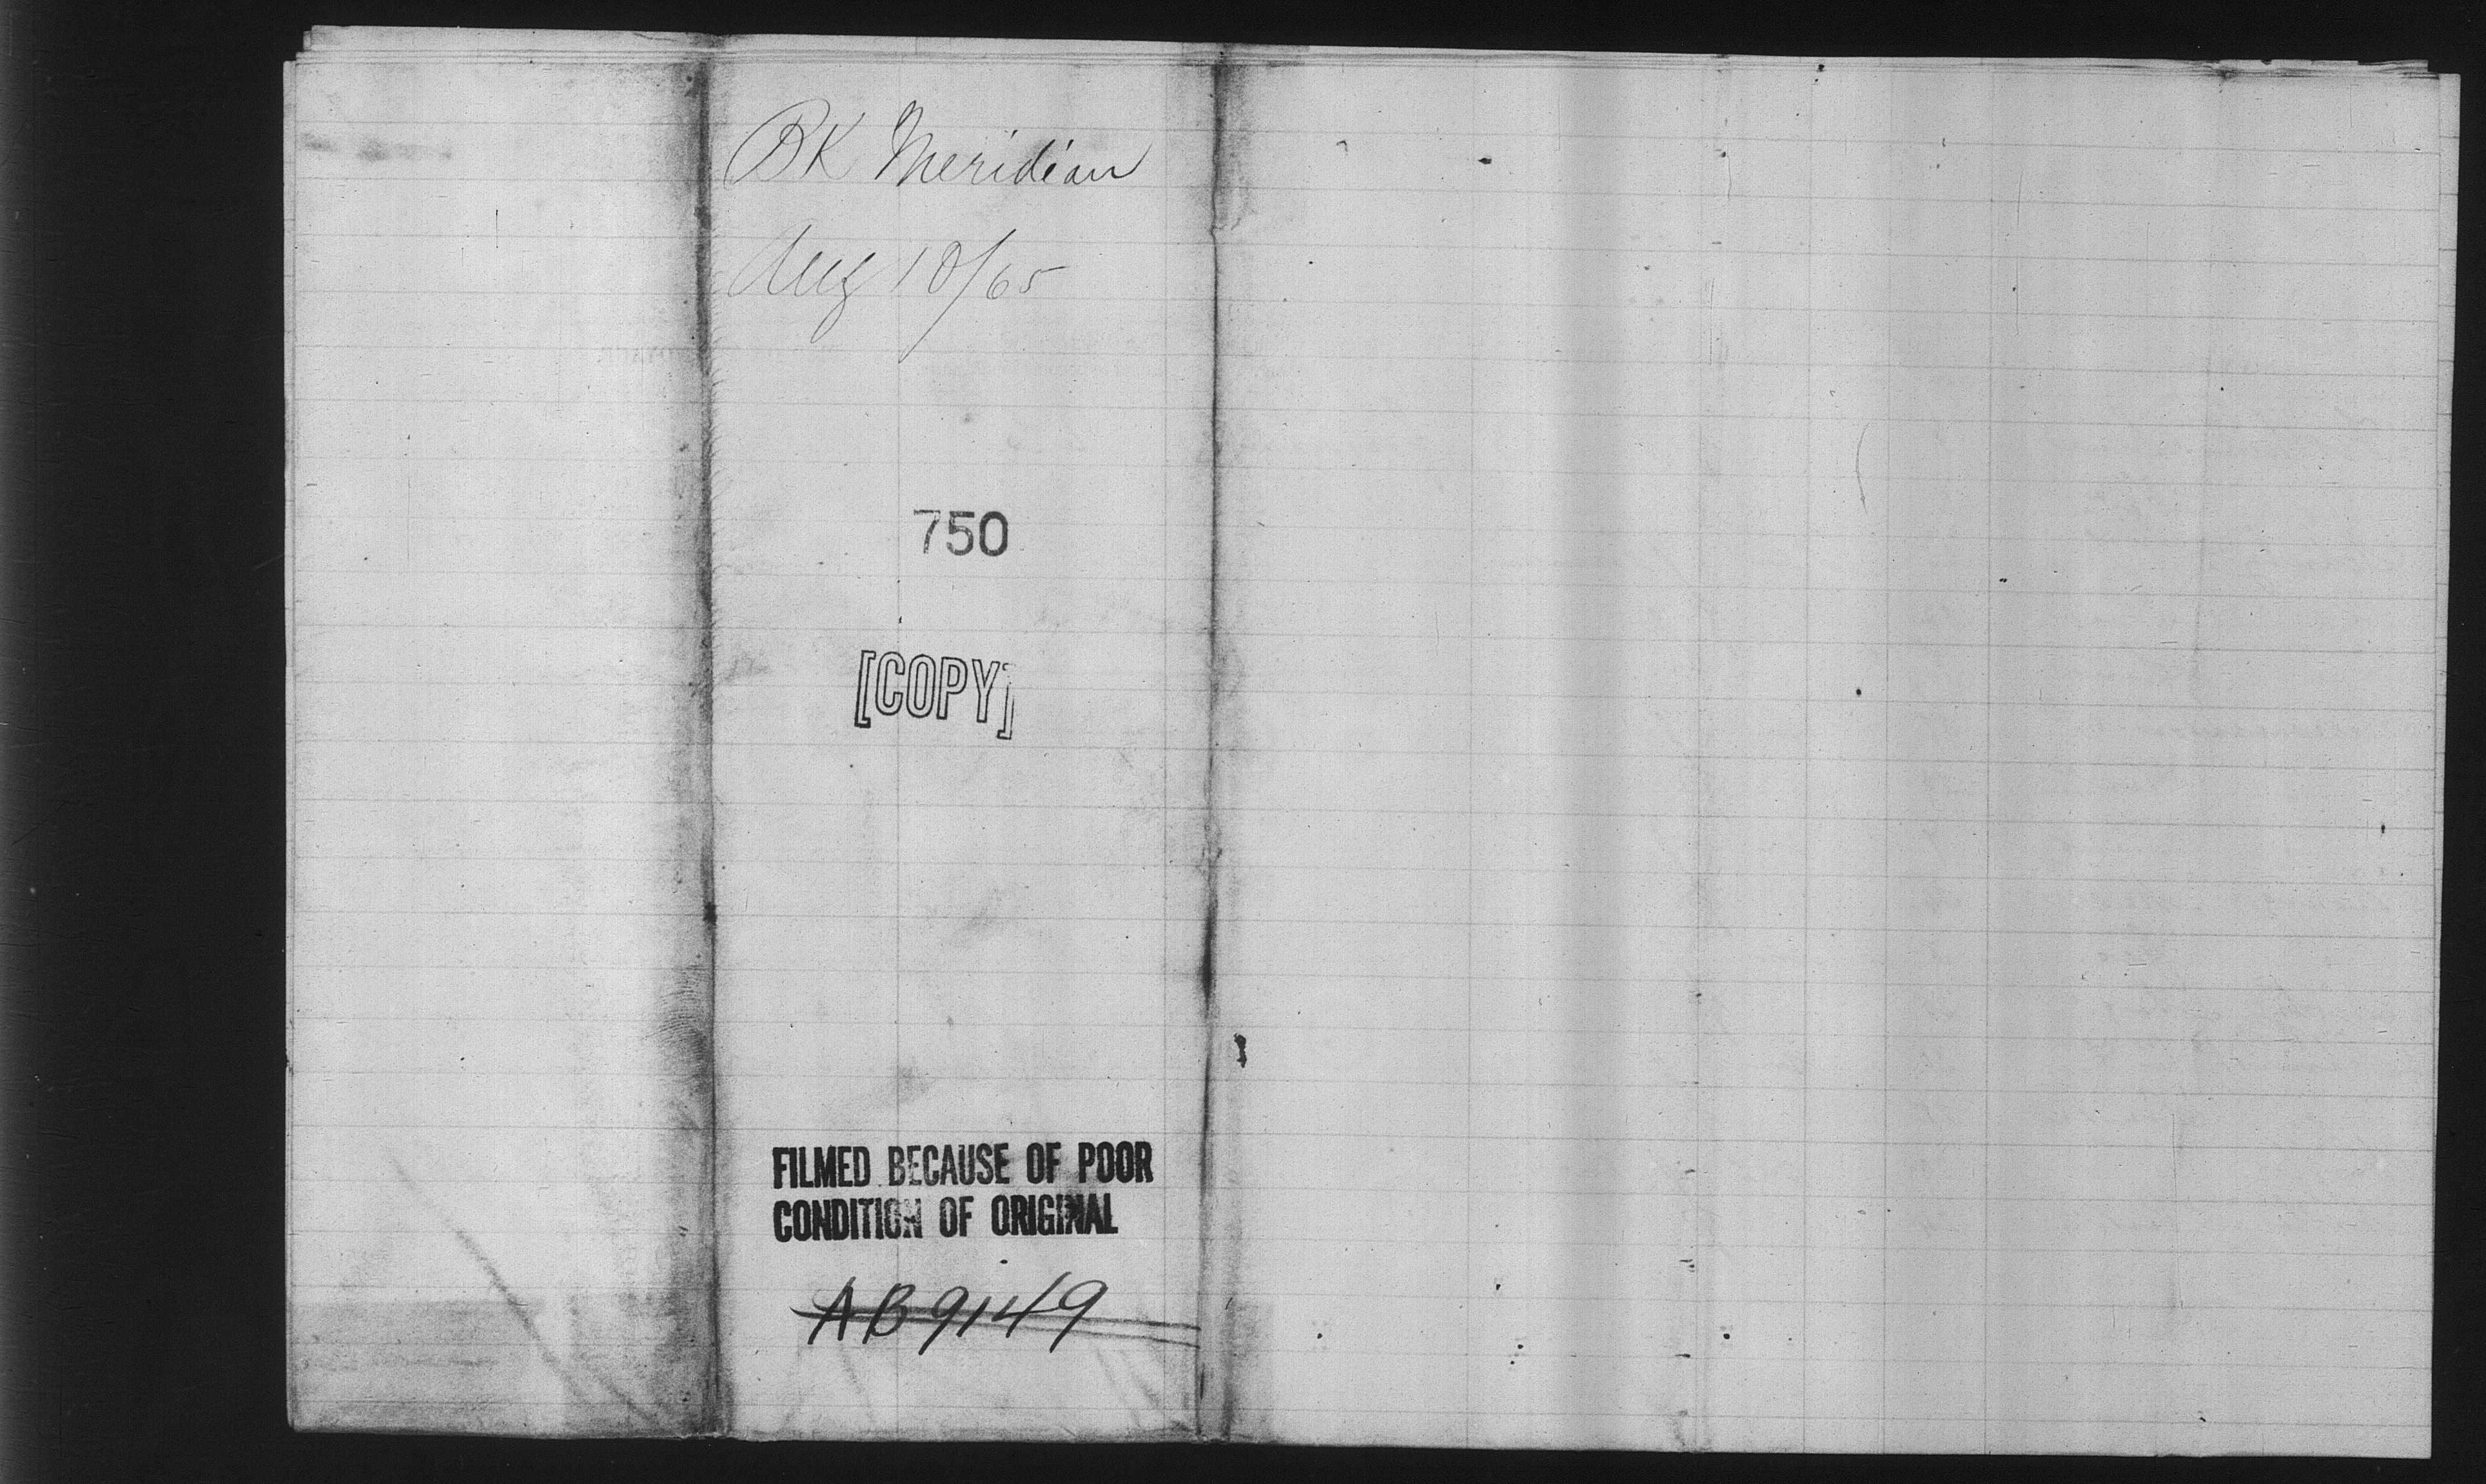 BK Meridian
Aug 10/65
750
[COPY]
FILMED BECAUSE OF POOR
CONDITION OF ORIGINAL
AB9149